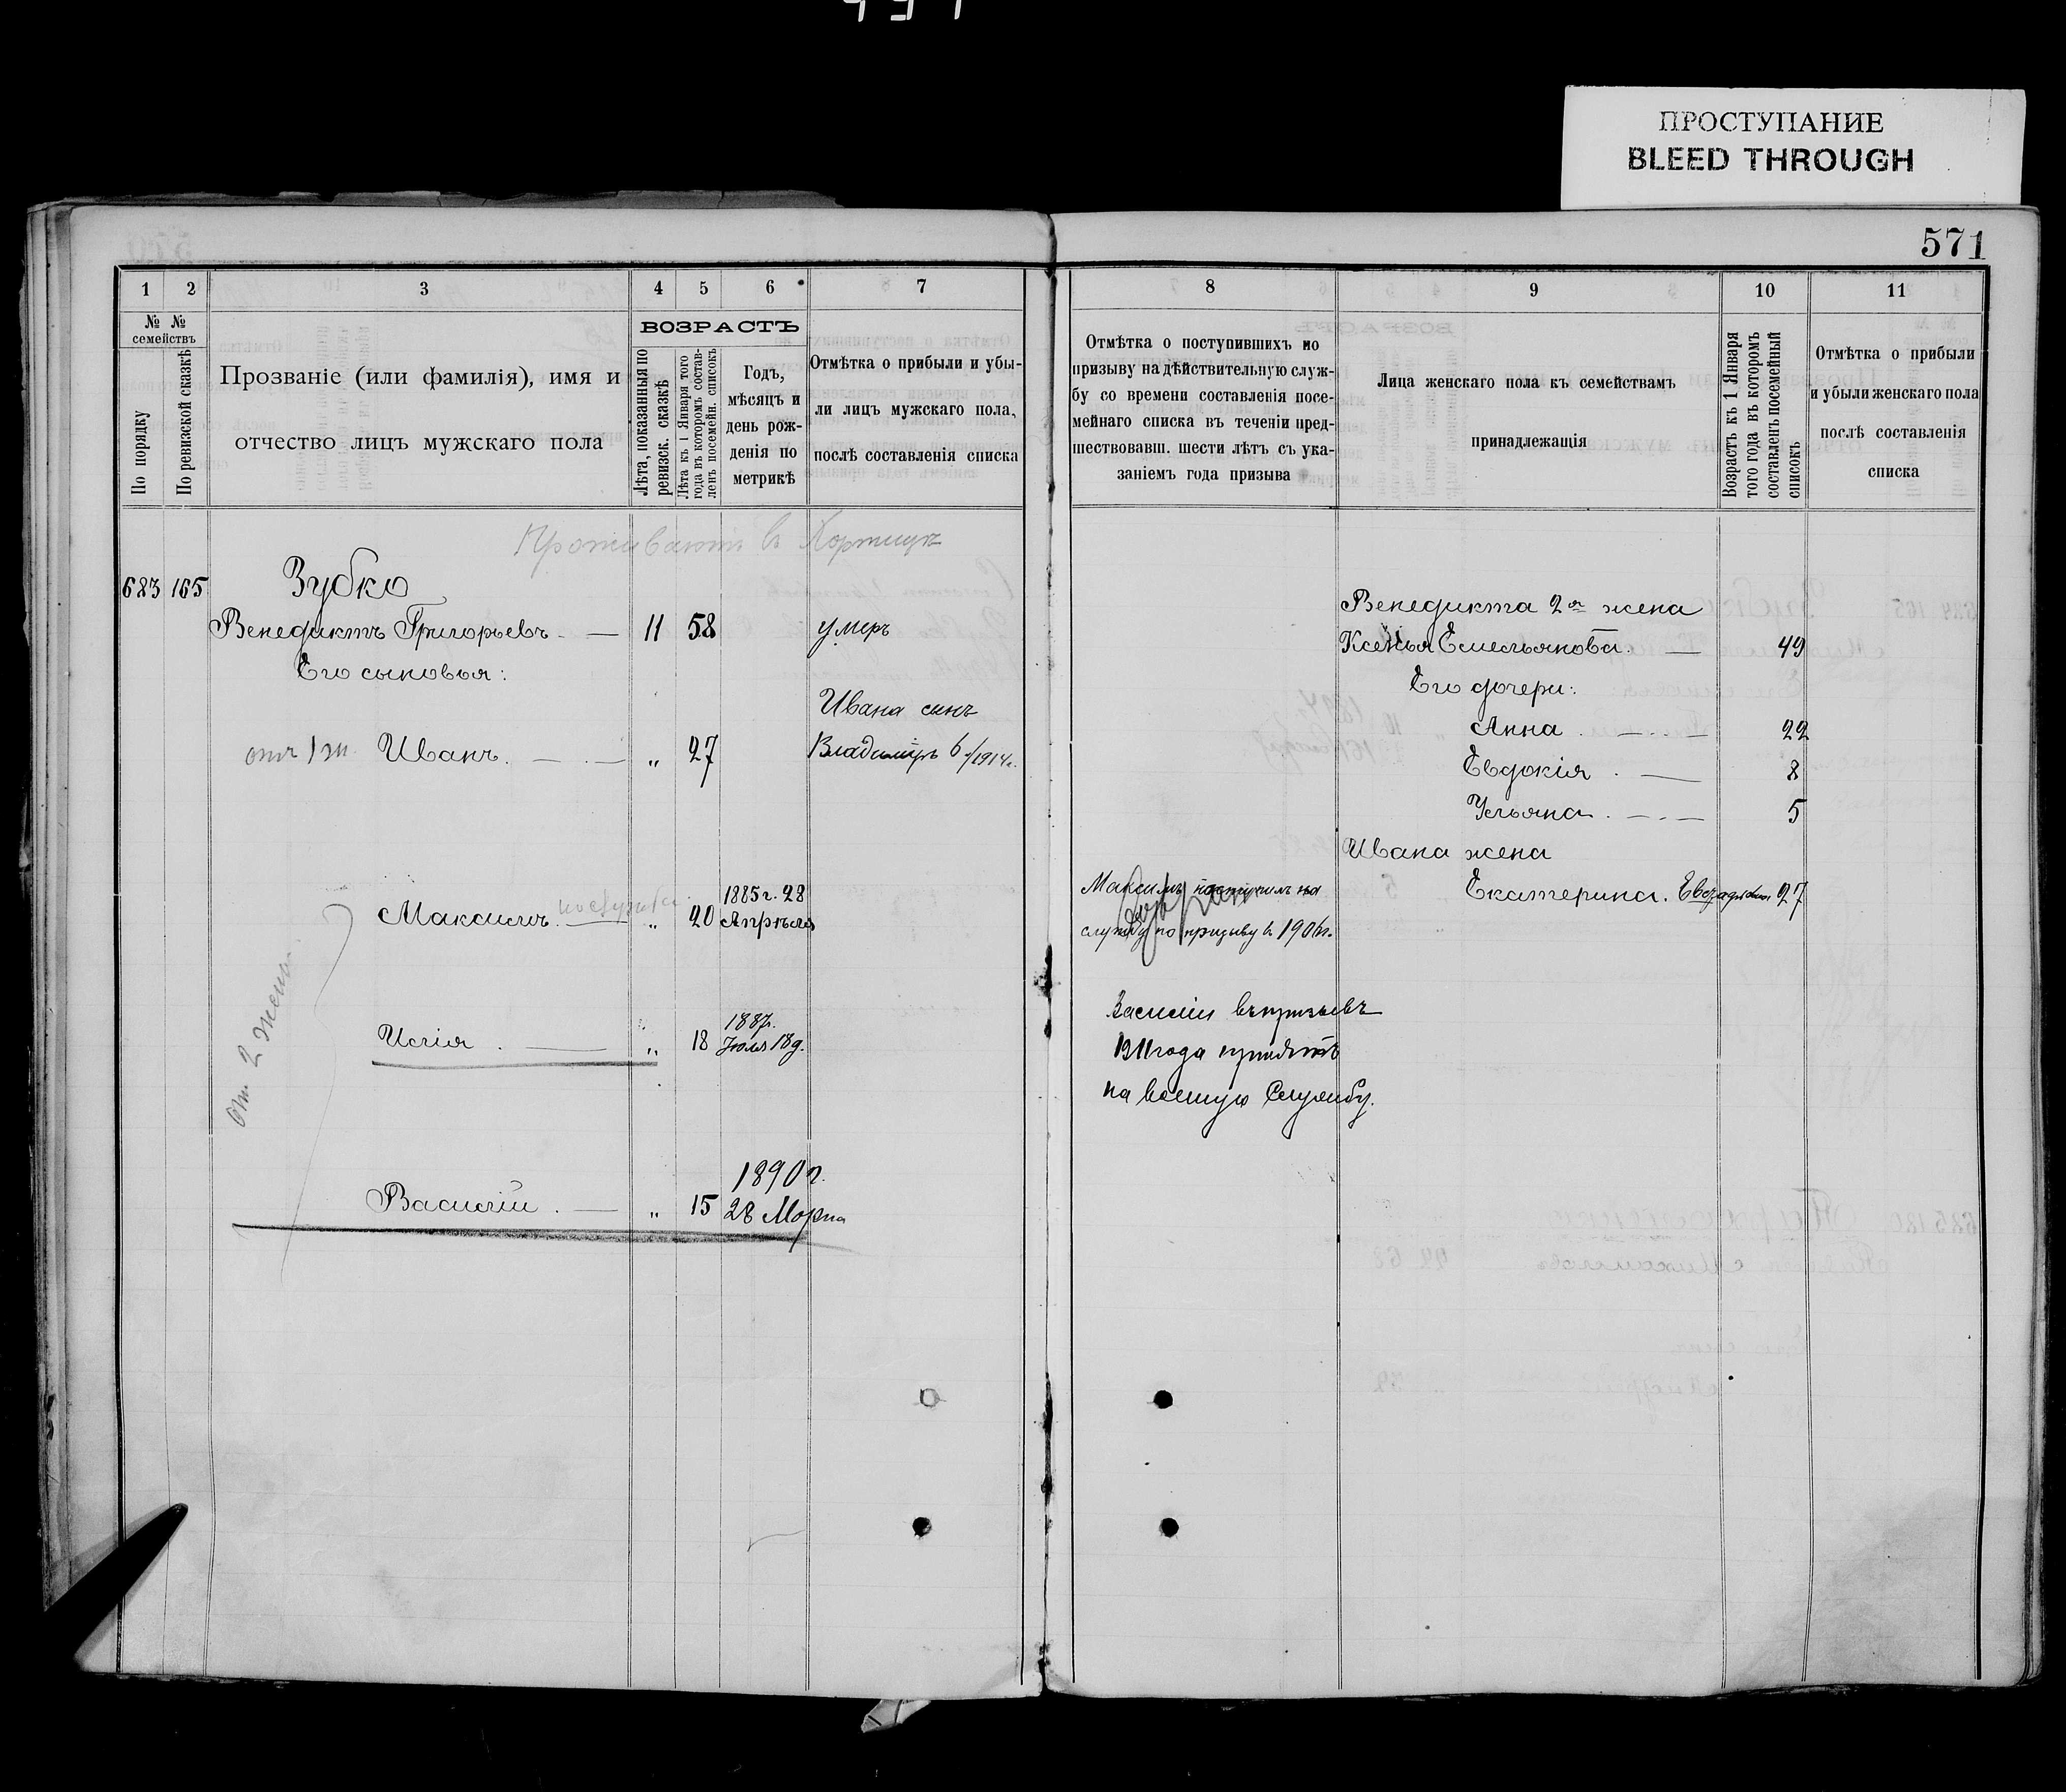 ПРОСТУПАНИЕ
BLEED THROUGH
571
1 2 3 4 5 6 7
№ №
семействъ
По порядку
По ревизской сказкѣ
Прозваніе (или фамилія), имя и
отчество лицъ мужскаго пола
ВОЗРАСТЪ
Лѣта, показанныя по
ревизск. сказкѣ
Лѣта къ 1 Января того
года въ которомъ состав-
ленъ посемейн. списокъ
Годъ,
мѣсяцъ и
день рож-
денія по
метрикѣ
Отмѣтка о прибыли и убы-
ли лицъ мужскаго пола,
послѣ составленія списка
Проживаютъ в Хортицѣ
623 165 Зубко
Венедиктъ Григорьевъ 11 58 умеръ
Его сыновья:
Ивана сынъ
отъ 1 ж Иванъ. „ 27 Владиміръ 6 /1914г.
1885 г. 28
Максимъ. „ 20 Апрѣля
От 2 жены
1887г.
Илія „ 18 Іюля 18 д.
1890 г.
Василій „ 15 28 Марта
8 9 10 11
Отмѣтка о поступившихъ по
призыву на дѣйствительную служ-
бу со времени составленія посе-
мейнаго списка въ теченіи пред-
шествовавш. шести лѣтъ съ ука-
заніемъ года призыва
Лица женскаго пола къ семействамъ
принадлежащія
Возрастъ къ 1 Января
того года въ которомъ
составленъ посемейный
списокъ
Отмѣтка о прибыли
и убыли женскаго пола
послѣ составленія
списка
Венедикта 2я жена
Ксенья Емельянова. 49
Его дочери:
Анна 22
Евдокія 8
Ульяна 5
Ивана жена
Екатерина. 27
Максимъ поступилъ на
службу по призыву в 1906г.
Василій въ призывъ
1911 года принятъ
на военную Службу.